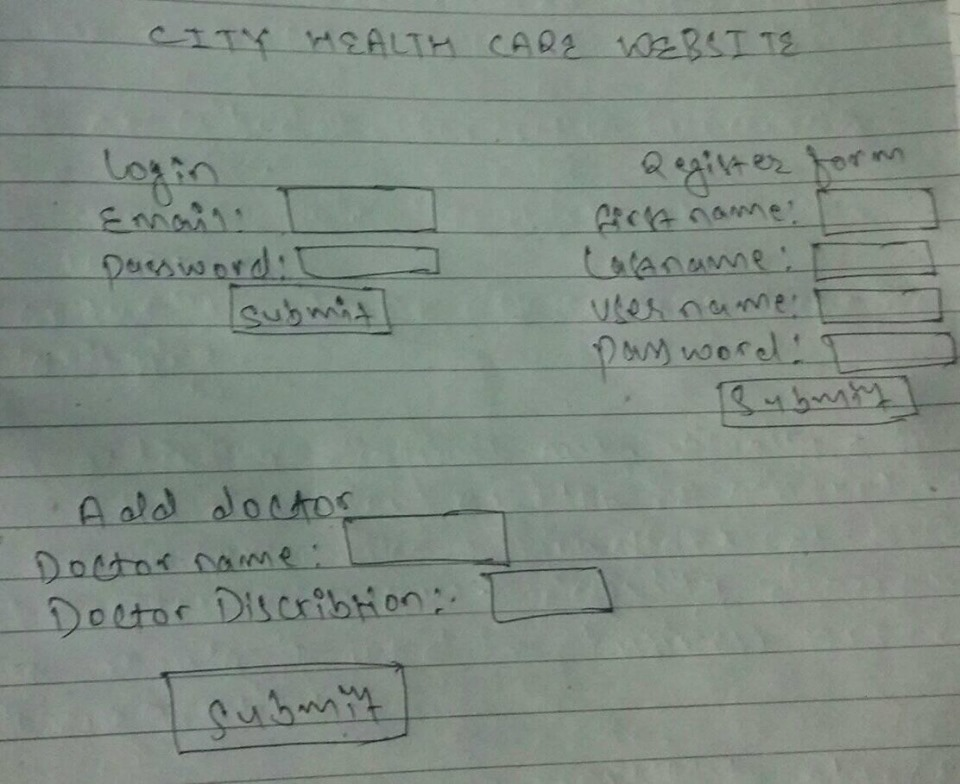 CITY HEALTH CARE WEBSITE
Login
Email:
password:
submit
Register form
first name:
Lastname:
user name:
password:
Submit
Add doctor
Doctor name:
Doctor Discribtion:
submit